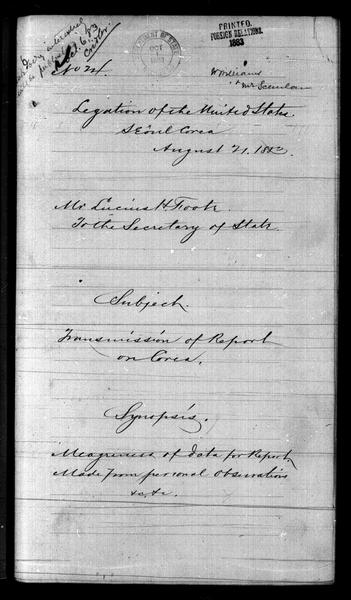 PRINTED.
FOREIGN RELATIONS.
1883
OCT
No 24.
Legation of the United States
Seoul Corea
August 21. 188
Mr. Lucius H. Foote
To the Secretary of State.
Subject.
Transmission of Report
on Corea.
Synopsis.
Meagreness of data for Report,
Made from personal observations
&c, &c.